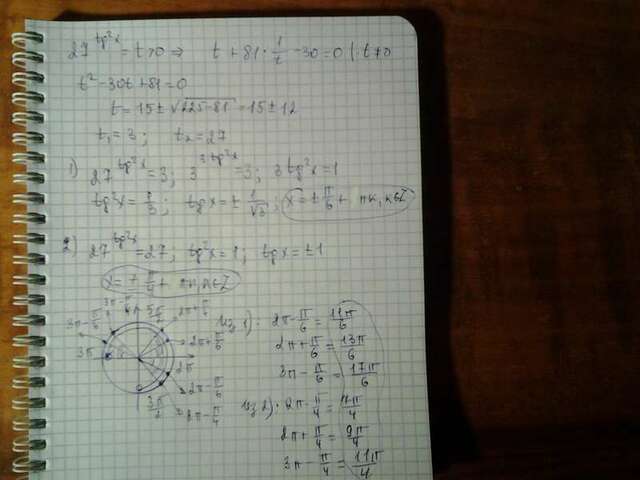 27^{tg²x} = t>0 ⇒ t + 81 · 1/t - 30 = 0 | · t≠0
t² - 30t + 81 = 0
t = 15 ± √225-81 = 15 ± 12
t₁ = 3; t₂ = 27
1) 27^{tg²x} = 3; 3^{3tg²x} = 3; 3tg²x = 1
tg²x = 1/3; tgx = ± 1/√3; x = ± π/6 + πk, k∈Z
2) 27^{tg²x} = 27; tg²x = 1; tgx = ±1
x = ∓ π/4 + πk, k∈Z
5π/2
2π + π/4
3π - π/6
2π + π/6
3π
2π
2π - π/6
3π/2
2π - π/4
из 1): 2π - π/6 = 11π/6
2π + π/6 = 13π/6
3π - π/6 = 17π/6
из 2): 2π - π/4 = 7π/4
2π + π/4 = 9π/4
3π - π/4 = 11π/4